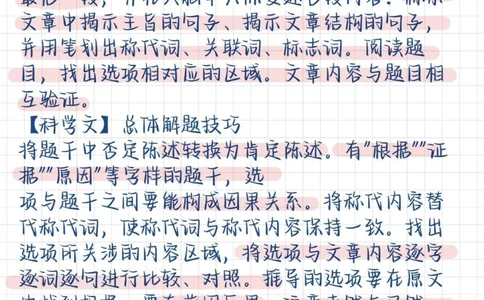 文章中揭示主旨的句子、揭示文章结构的句子,
并用笔划出称代词、关联词、标志词。阅读题
目,找出选项相对应的区域。文章内容与题目相
互验证。
【科学文】总体解题技巧
将题干中否定陈述转换为肯定陈述。有"根据""证
据""原因"等字样的题干,选
项与题干之间要能构成因果关系。将称代内容替
代称代词,使称代词与称代内容保持一致。找出
选项所关涉的内容区域,将选项与文章内容逐字
逐词逐句进行比较、对照。推导的选项要在原文